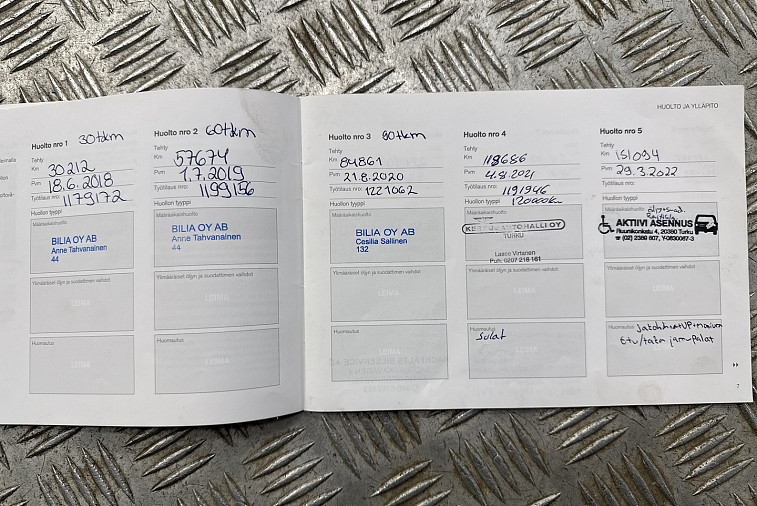 HUOLTO JA YLLÄPITO
Huolto nro 1 30tkm
Tehty
Km 30212
Pvm 18.6.2018
Työtilaus nro: 1179172
Huollon tyyppi
Määräaikaishuolto
BILIA OY AB
Anne Tahvanainen
44
Ylimääräiset öljyn ja suodattimen vaihdot
LEIMA
Huomautus
LEIMA
Huolto nro 2 60tkm
Tehty
Km 57674
Pvm 1.7.2019
Työtilaus nro: 1199156
Huollon tyyppi
Määräaikaishuolto
BILIA OY AB
Anne Tahvanainen
44
Ylimääräiset öljyn ja suodattimen vaihdot
LEIMA
Huomautus
LEIMA
Huolto nro 3 90tkm
Tehty
Km 84861
Pvm 21.8.2020
Työtilaus nro: 1221062
Huollon tyyppi
Määräaikaishuolto
BILIA OY AB
Cesilia Sallinen
132
Ylimääräiset öljyn ja suodattimen vaihdot
LEIMA
Huomautus
Huolto nro 4
Tehty
Km 118686
Pvm 4.8.2021
Työtilaus nro: 1191946
Huollon tyyppi 120000km
Määräaikaishuolto
AUTOHALLI OY
TURKU
Lasse Virtanen
Puh: 0207 218 161
Ylimääräiset öljyn ja suodattimen vaihdot
LEIMA
Huomautus
Sulat
LEIMA
Huolto nro 5
Tehty
Km 151094
Pvm 29.3.2022
Työtilaus nro:
Huollon tyyppi
Määräaikaishuolto
AKTIIVI ASENNUS
Ruunikonkatu 4, 20380 Turku
☎ (02) 2389 607, Y-0630067-3
Ylimääräiset öljyn ja suodattimen vaihdot
LEIMA
Huomautus
Etu/taka jarrupalat
7